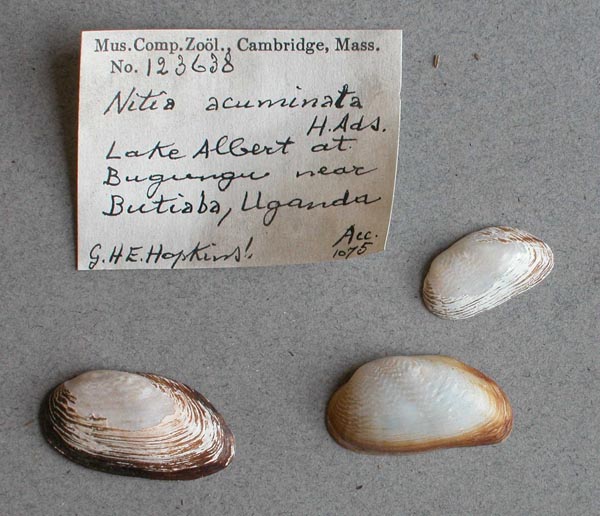 Mus. Comp. Zoöl., Cambridge, Mass.
No. 123638
Nitia acuminata
H. Ads.
Lake Albert at
Bugungu near
Butiaba, Uganda
G.HE.Hopkins! Acc.
1075